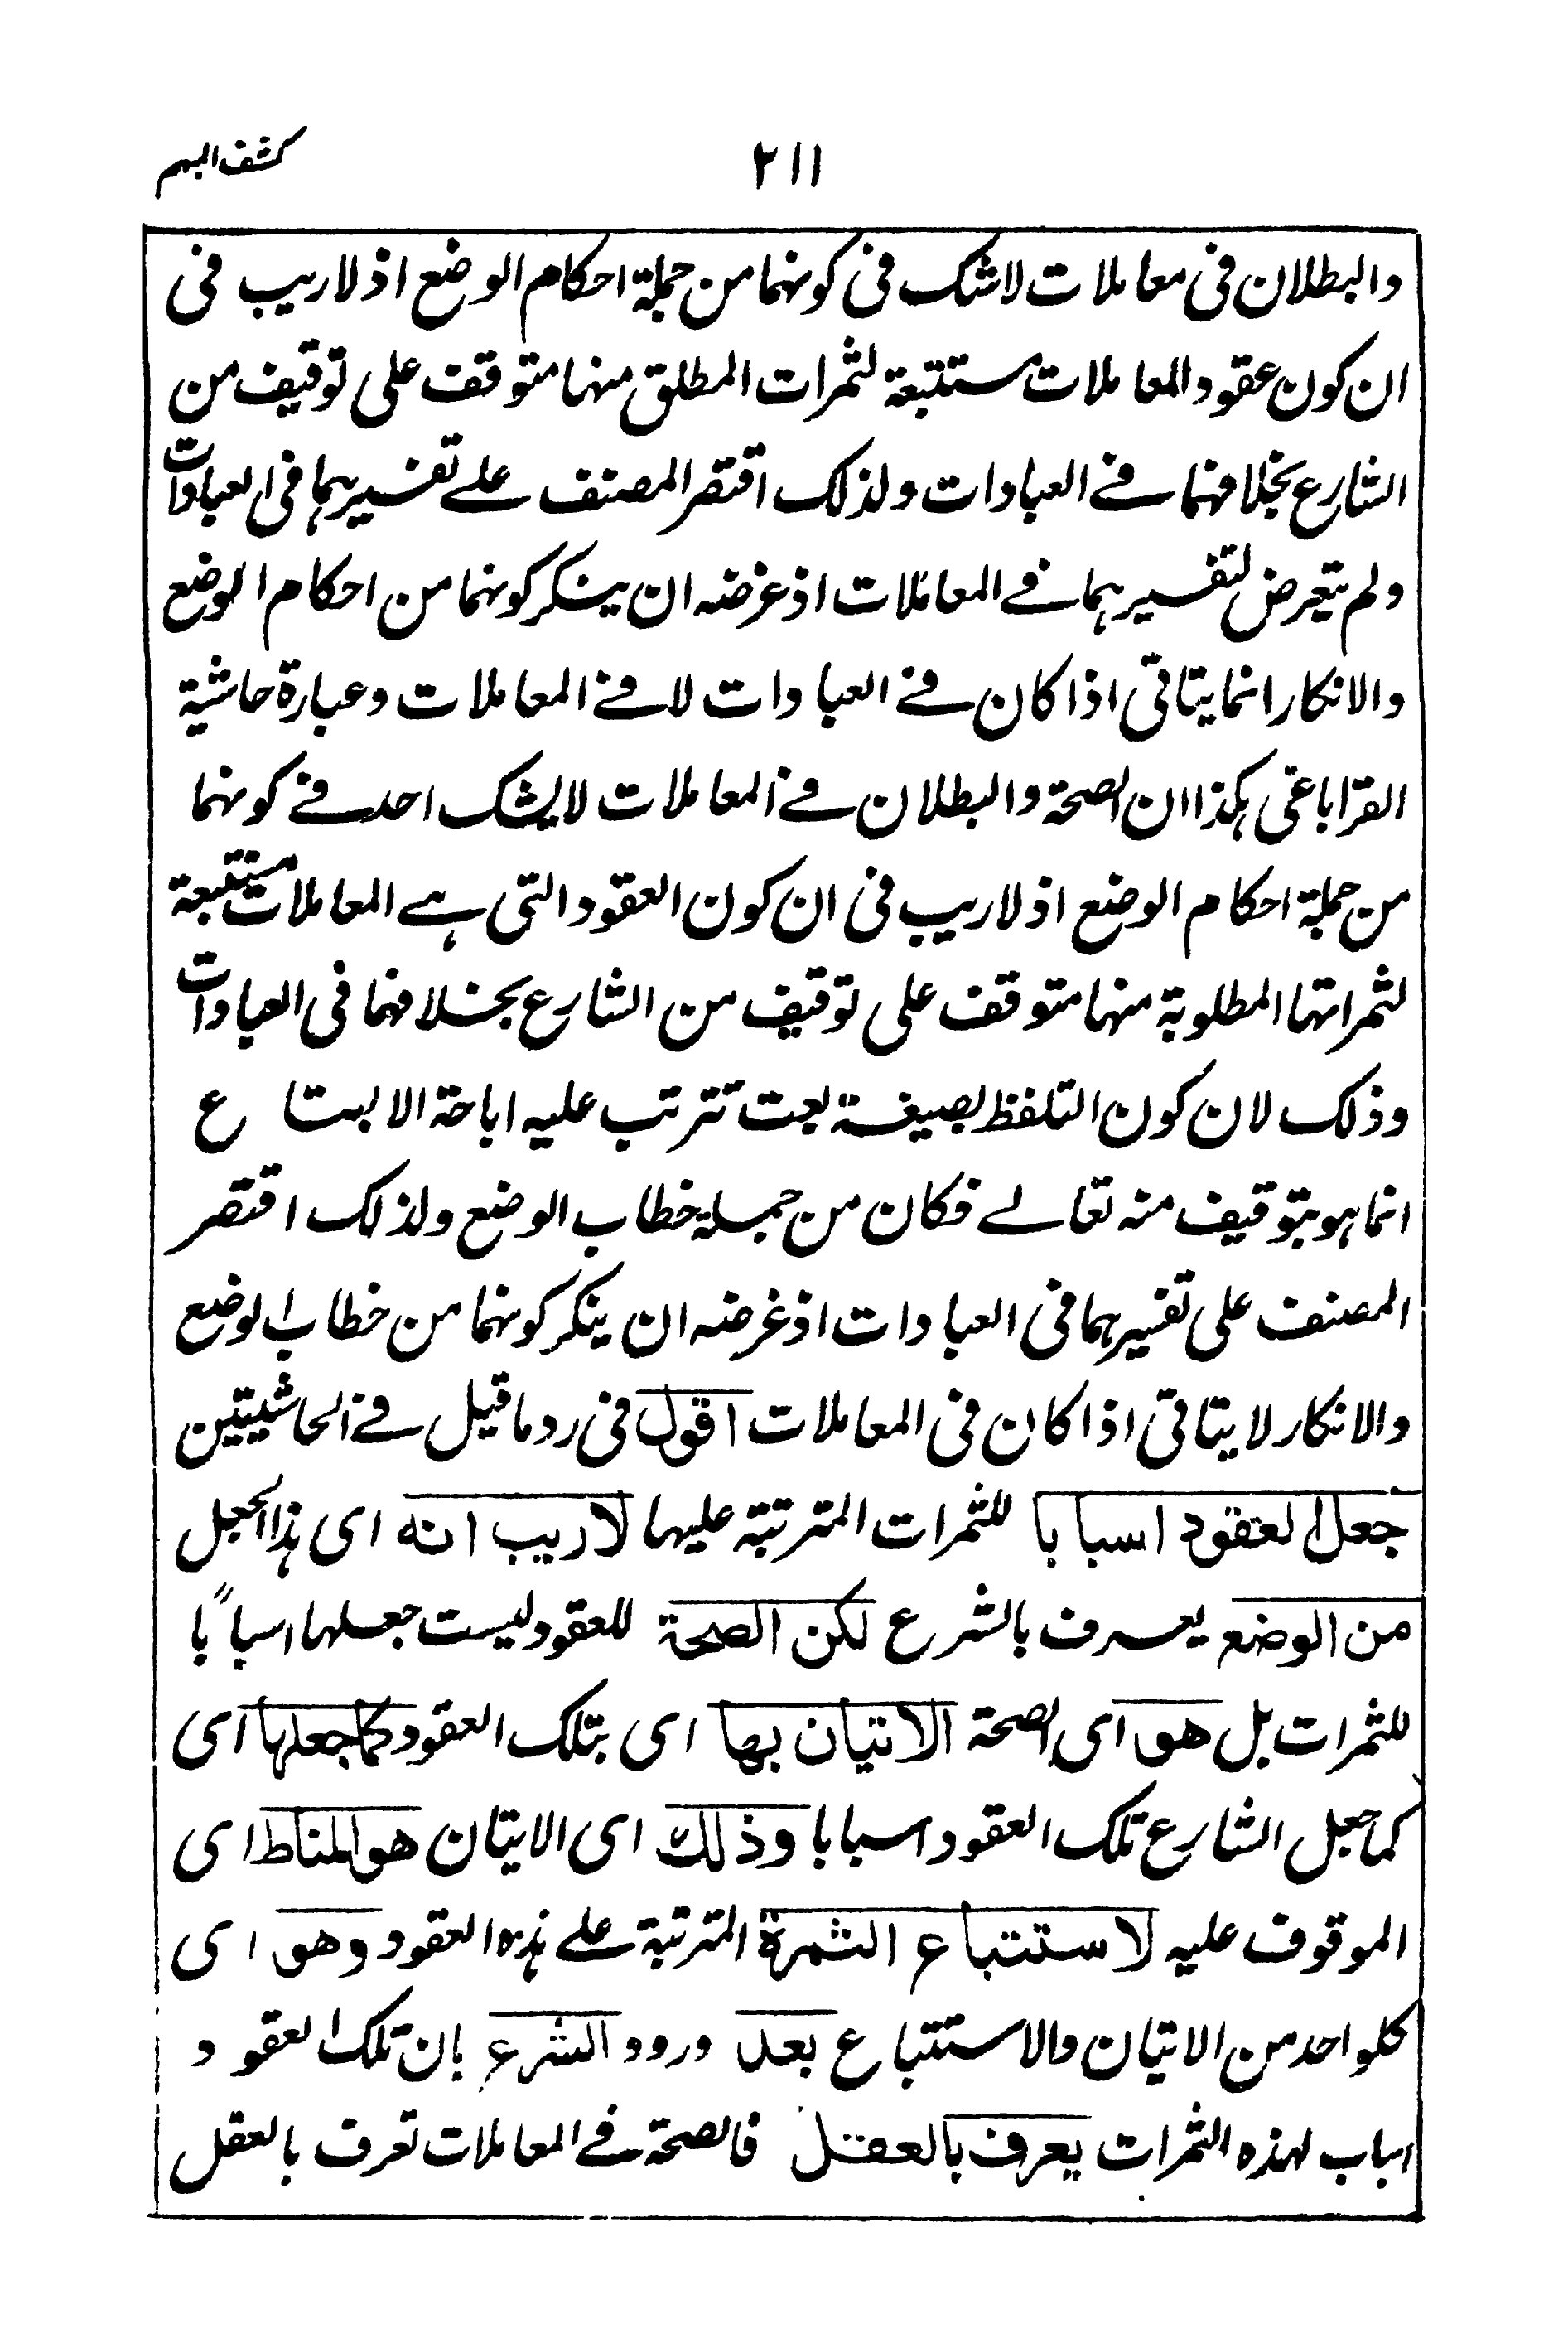 كشف المبهم
٢١١
والبطلان في معاملات لاشك في كونهما من جملة احكام الوضع اذ لاريب في
ان كون عقود المعاملات مستتبعة لثمرات المطلق منهما متوقف على توقيف من
الشارع بخلافهما في العبادات ولذلك اقتصر المصنف على تفسيرهما في العبادات
ولم يتعرض لتفسيرهما في المعاملات اذ غرضه ان ينكر كونهما من احكام الوضع
والانكار انما يتاتى اذا كان في العبادات لا في المعاملات وعبارة حاشية
القراباغي هكذا ان الصحة والبطلان في المعاملات لايشك احد في كونهما
من جملة احكام الوضع اذ لاريب في ان كون العقود التي هي المعاملات مستتبعة
لثمراتها المطلوبة منهما متوقف على توقيف من الشارع بخلافهما في العبادات
وذلك لان كون التلفظ بصيغة بعت تترتب عليه اباحة الابتاع
انما هو بتوقيف منه تعالى فكان من جملة خطاب الوضع ولذلك اقتصر
المصنف على تفسيرهما في العبادات اذ غرضه ان ينكر كونهما من خطاب الوضع
والانكار لا يتاتى اذا كان في المعاملات اقول في رد ما قيل في الحاشيتين
جعل العقود اسبابا للثمرات المترتبة عليها لاريب انه اى هذا الجعل
من الوضع يعرف بالشرع لكن الصحة للعقود ليست جعلها اسباباً
للثمرات بل هو اى الصحة الاتيان بها اى بتلك العقود كما جعلها اى
كما جعل الشارع تلك العقود اسبابا وذلك اى الاتيان هو المناط اى
الموقوف عليه لاستتباع الثمرة المترتبة على هذه العقود وهو اى
كلواحد من الاتيان والاستتباع بعد ورود الشرع بان تلك العقود
اسباب لهذه الثمرات يعرف بالعقل فالصحة في المعاملات تعرف بالعقل